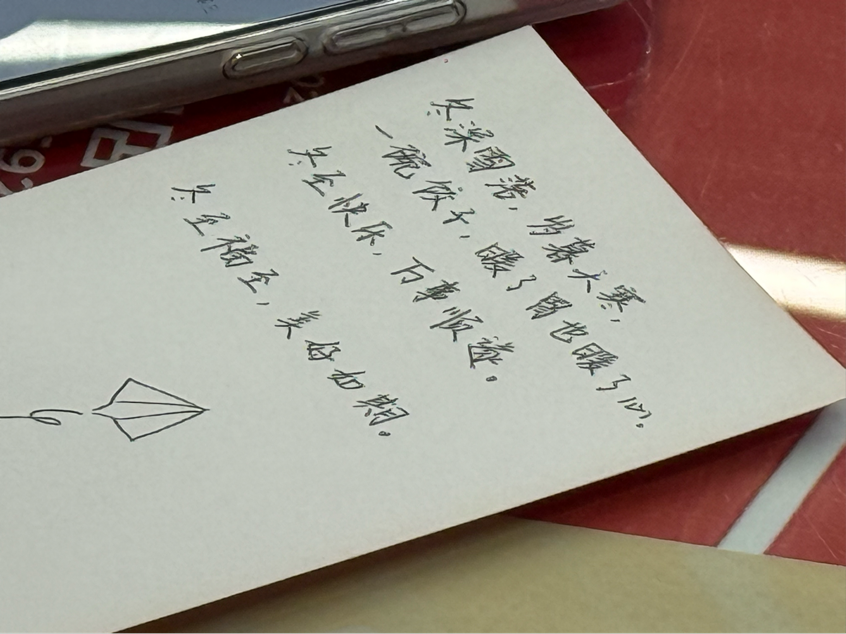 冬深雪落，岁暮大寒，
一碗饺子，暖了胃也暖了心。
冬至快乐，万事顺遂。
冬至福至，美好如期。